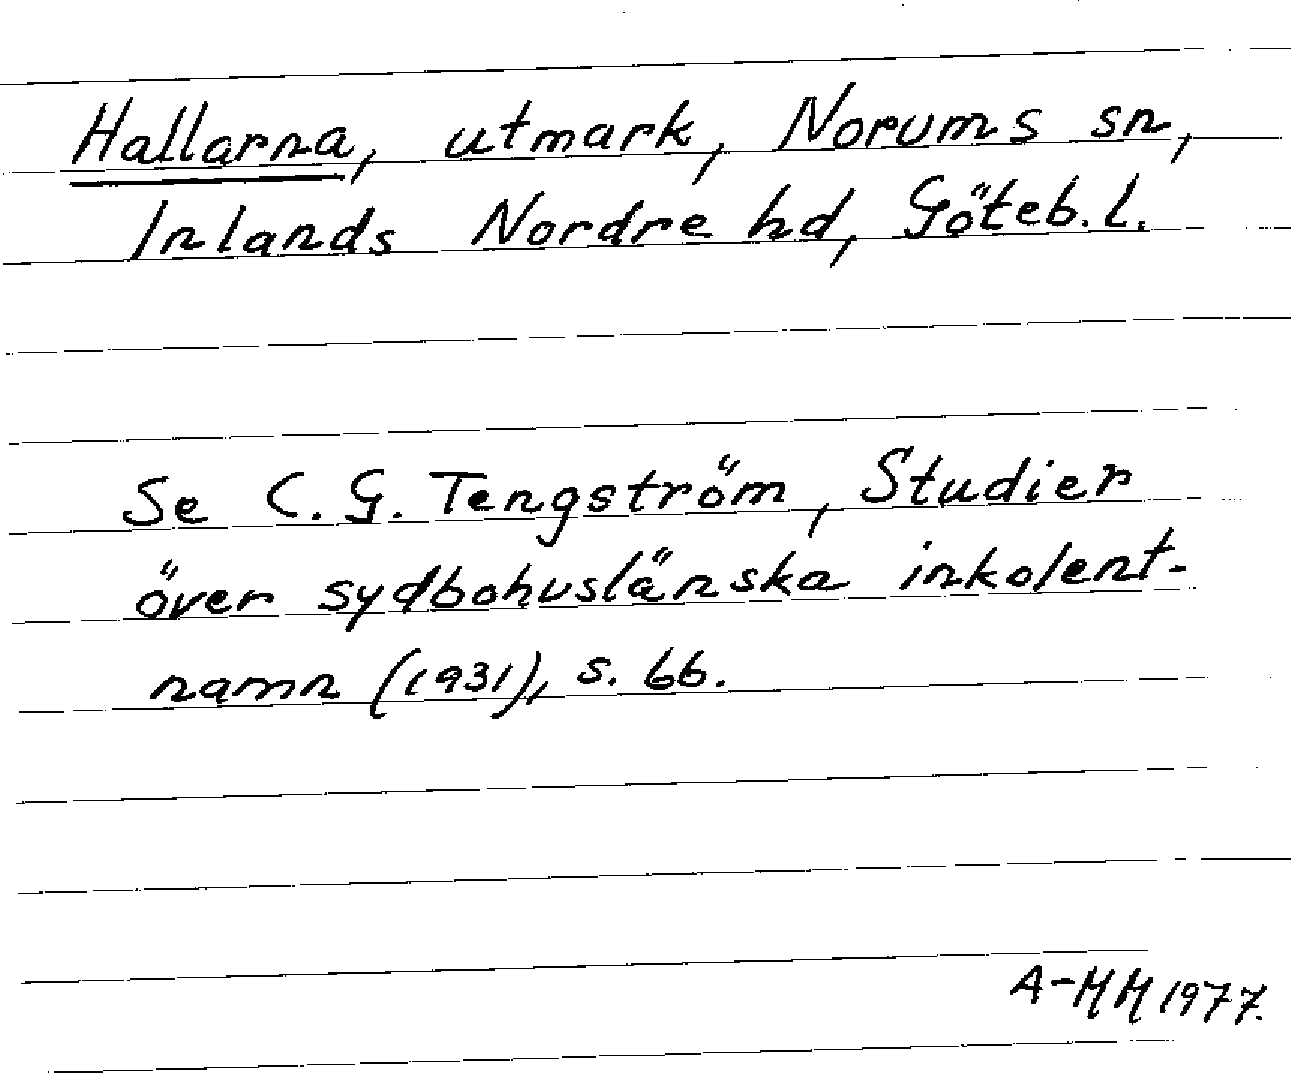 Hallarna, utmark, Norums sn,
Inlands Nordre hd, Göteb. l.
Se C. G. Tengström, Studier
över sydbohuslänska inkolent-
namn (1931), s. 66.
A-MM 1977.